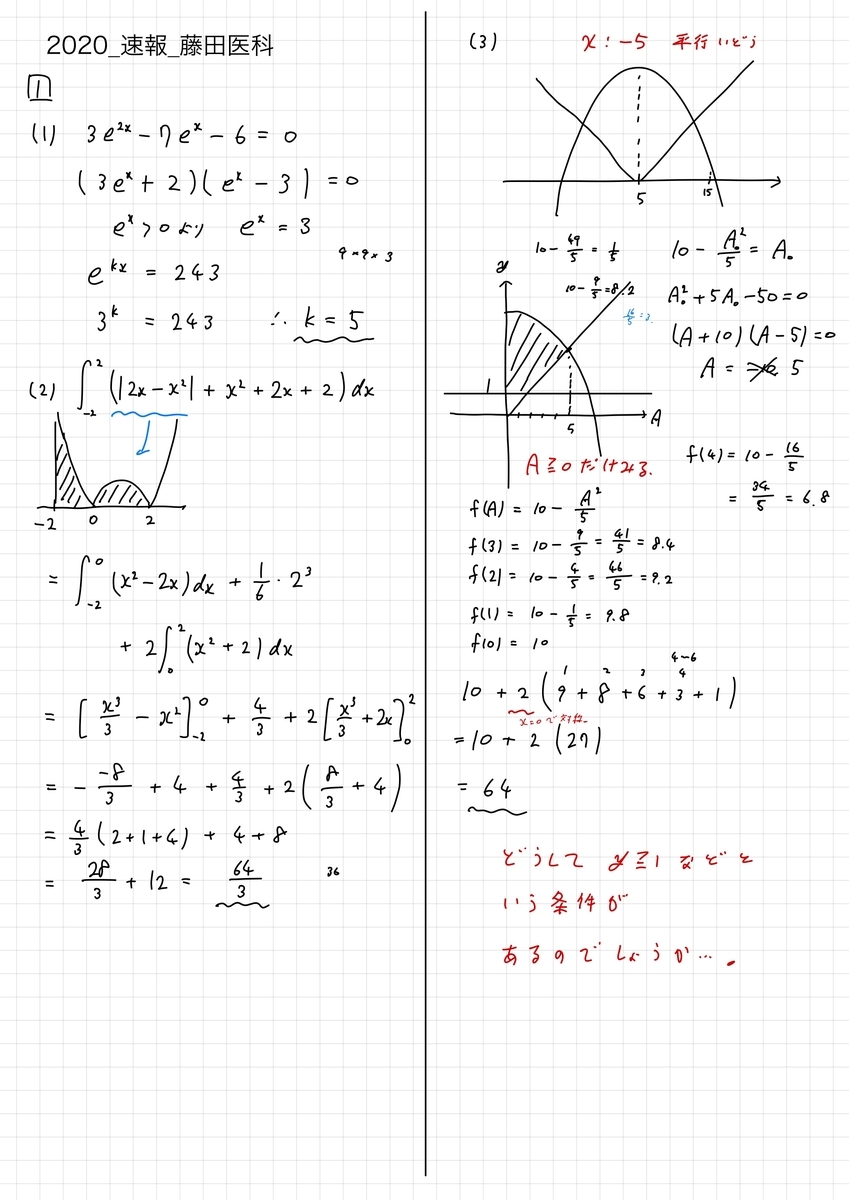 2020_速報_藤田医科
1
(1) 3e^{2x} - 7e^x - 6 = 0
(3e^x + 2)(e^x - 3) = 0
e^x > 0 より e^x = 3
9×9×3
e^{kx} = 243
3^k = 243 ∴ k = 5
(2) ∫_{-2}^{2} (|2x - x²| + x² + 2x + 2) dx
-2 0 2
= ∫_{-2}^{0} (x² - 2x) dx + 1/6 · 2³
+ 2∫_{0}^{2} (x² + 2) dx
= [x³/3 - x²]_{-2}^{0} + 4/3 + 2[x³/3 + 2x]_{0}^{2}
= - -8/3 + 4 + 4/3 + 2(8/3 + 4)
= 4/3 (2 + 1 + 4) + 4 + 8
= 28/3 + 12 = 64/3
36
(3) x : -5 平行いどう
5 15
10 - 49/5 = 1/5
10 - A₀²/5 = A₀
y
10 - 9/5 = 8.2
A₀² + 5A₀ - 50 = 0
(A + 10)(A - 5) = 0
A = 5
1
5
A
A ≧ 0 だけ考える.
f(4) = 10 - 16/5
= 34/5 = 6.8
f(A) = 10 - A²/5
f(3) = 10 - 9/5 = 41/5 = 8.4
f(2) = 10 - 4/5 = 46/5 = 9.2
f(1) = 10 - 1/5 = 9.8
f(0) = 10
4~6
1 2 3 4
10 + 2 (9 + 8 + 6 + 3 + 1)
x=0で対称.
= 10 + 2 (27)
= 64
どうして y≧1 などと
いう条件が
あるのでしょうか….